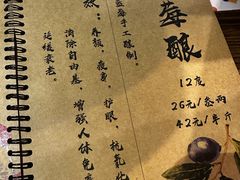 莓酿
12度
26元/叁两
42元/半斤
蓝莓手工酿制。
效：养颜，瘦身，护眼，抗氧化
清除自由基，增强人体免
延缓衰老。